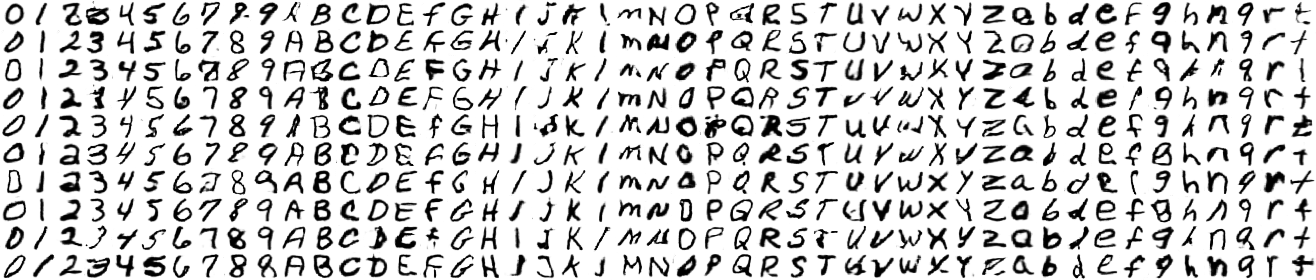 0 1 2 3 4 5 6 7 8 9 A B C D E f G H I J K l m N O P Q R S T U V W X Y Z a b d e f g h n q r t
0 1 2 3 4 5 6 7 8 9 A B C D E F G H I J K l m N O P Q R S T U V W X Y Z a b d e f g h n q r t
0 1 2 3 4 5 6 7 8 9 A B C D E F G H I J K l m N O P Q R S T U V W X Y Z a b d e f g h n q r t
0 1 2 3 4 5 6 7 8 9 A B C D E F G H I J K l m N O P Q R S T U V W X Y Z a b d e f g h n q r t
0 1 2 3 4 5 6 7 8 9 A B C D E f G H I J K l m N O P Q R S T U V W X Y Z a b d e f g h n q r t
0 1 2 3 4 5 6 7 8 9 A B C D E F G H I J K l m N O P Q R S T U V W X Y Z a b d e f g h n q r t
0 1 2 3 4 5 6 7 8 9 A B C D E f G H I J K l m N O P Q R S T U V W X Y Z a b d e f g h n q r t
0 1 2 3 4 5 6 7 8 9 A B C D E F G H I J K l m N O P Q R S T U V W X Y Z a b d e f g h n q r t
0 1 2 3 4 5 6 7 8 9 A B C D E f G H I J K l m N O P Q R S T U V W X Y Z a b d e f g h n q r t
0 1 2 3 4 5 6 7 8 9 A B C D E f G H I J K l M N O P Q R S T U V W X Y Z a b d e f g h n q r t